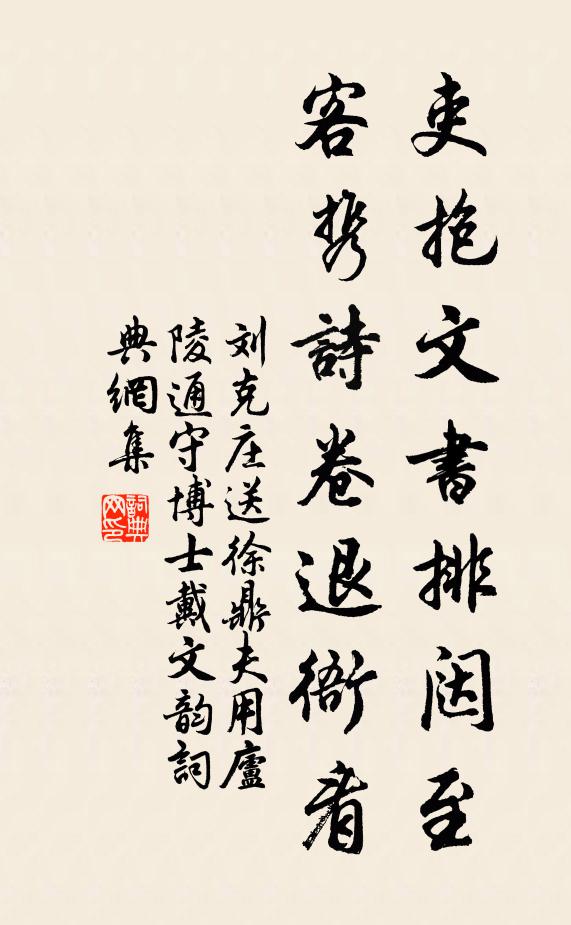 吏抱文書排闼至
客携詩卷退衙看
刘克庄送徐鼎夫用廬
陵通守博士戴文韵詞
典網集
詞典網印